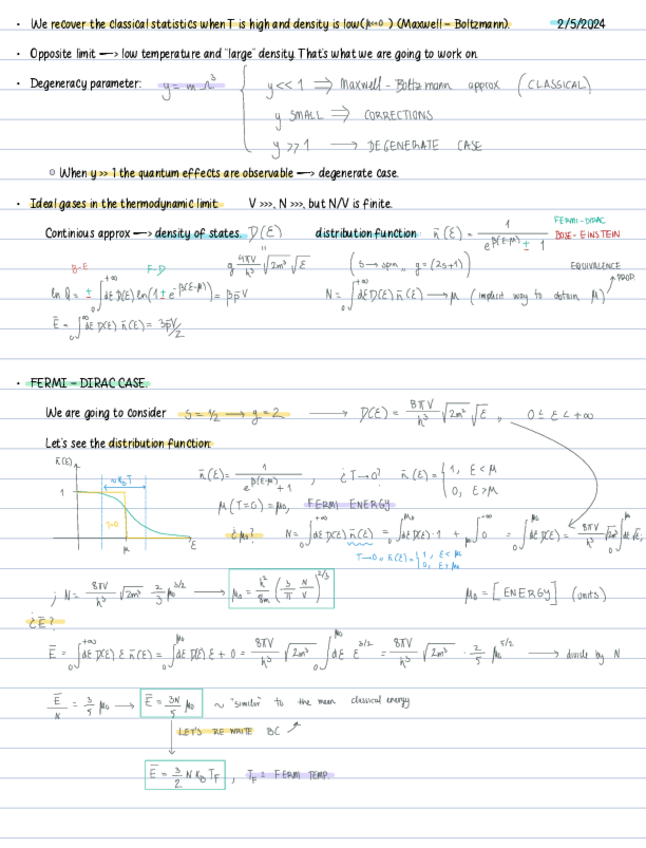 • We recover the classical statistics when T is high and density is low (μ<<0) (Maxwell – Boltzmann). 2/5/2024
• Opposite limit —> low temperature and "large" density. That's what we are going to work on.
• Degeneracy parameter: y = n λ³
y << 1 ⟹ Maxwell – Boltzmann approx (CLASSICAL)
y SMALL ⟹ CORRECTIONS
y >> 1 ⟶ DEGENERATE CASE
○ When y >> 1 the quantum effects are observable —> degenerate case.
• Ideal gases in the thermodynamic limit. V >>>, N >>>, but N/V is finite.
Continious approx —> density of states. D(ε) distribution function n̄(ε) = 1 / (e^{β(ε-μ)} ± 1) FERMI-DIRAC BOSE-EINSTEIN
= g 4πV/h³ √(2m³) √ε (s → spin, g = (2s+1)) EQUIVALENCE
B-E F-D
ln Q = ± ∫₀^{+∞} dε D(ε) ln(1 ± e^{-β(ε-μ)}) = βp̄V N = ∫₀^{+∞} dε D(ε) n̄(ε) ⟶ μ (implicit way to obtain μ) PROP.
Ē = ∫₀^{∞} dε D(ε) n̄(ε) = 3p̄V/2
• FERMI – DIRAC CASE.
We are going to consider s = 1/2 ⟶ g = 2 ⟶ D(ε) = 8πV/h³ √(2m³) √ε, 0 ≤ ε < +∞
Let's see the distribution function:
n̄(ε) ~k_BT 1 T=0 μ ε
n̄(ε) = 1 / (e^{β(ε-μ)} + 1), ¿T→0? n̄(ε) = { 1, ε<μ
0, ε>μ
μ(T=0) = μ₀, FERMI ENERGY
¿μ₀? N = ∫₀^{+∞} dε D(ε) n̄(ε) = ∫₀^{μ₀} dε D(ε)·1 + ∫_{μ₀}^{+∞} 0 = ∫₀^{μ₀} dε D(ε) = 8πV/h³ √(2m³) ∫₀^{μ₀} dε √ε;
T→0, n̄(ε) = { 1, ε<μ₀
0, ε>μ₀
; N = 8πV/h³ √(2m³) 2/3 μ₀^{3/2} ⟶ μ₀ = h²/8m (3/π N/V)^{2/3} μ₀ = [ENERGY] (units)
¿Ē?
Ē = ∫₀^{+∞} dε D(ε) ε n̄(ε) = ∫₀^{μ₀} dε D(ε) ε + 0 = 8πV/h³ √(2m³) ∫₀^{μ₀} dε ε^{3/2} = 8πV/h³ √(2m³) · 2/5 μ₀^{5/2} ⟶ divide by N
Ē/N = 3/5 μ₀ ⟶ Ē = 3N/5 μ₀ ~ "similar" to the mean classical energy
LET'S RE WRITE BC
Ē = 3/2 N k_B T_F, T_F = FERMI TEMP.